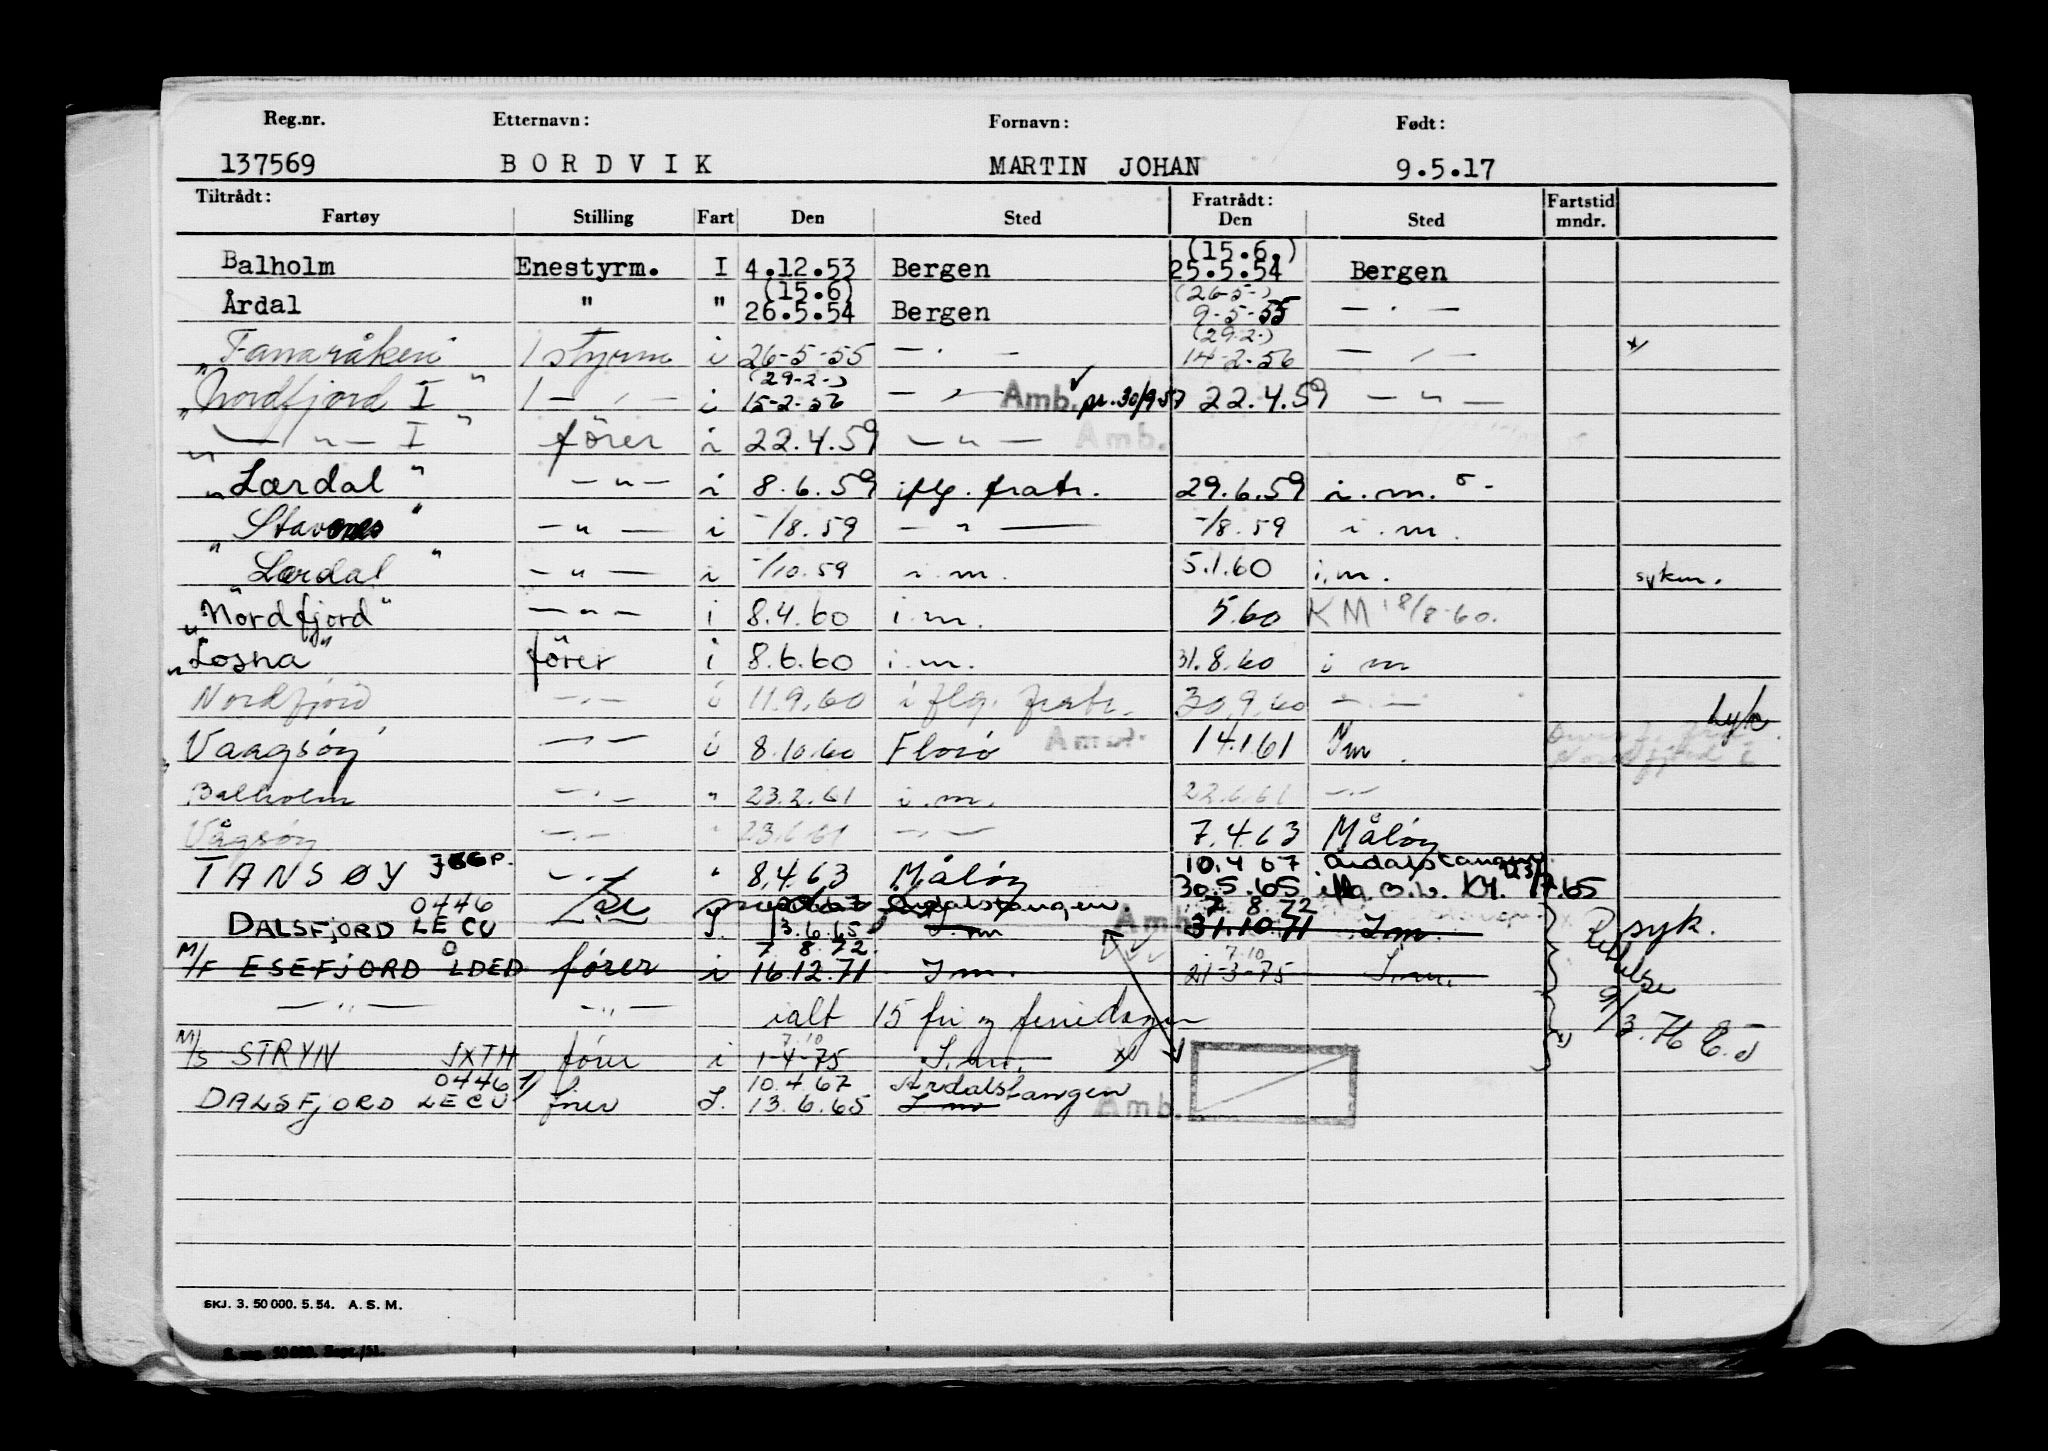 Reg.nr. Etternavn: Fornavn: Født:
137569 BORDVIK MARTIN JOHAN 9.5.17
Tiltrådt: Fratrådt: Fartstid
Fartøy Stilling Fart Den Sted Den Sted mndr.
(15.6.)
Balholm Enestyrm. I 4.12.53 Bergen 25.5.54 Bergen
(15.6) (26-5-)
Årdal " " 26.5.54 Bergen 9-5-55 — · —
(29-2-)
Fanaråken 1 styrm i 26-5-55 — · — 14-2-56 — · — x/
(29-2-)
"Nordfjord I" 1 — · — i 15-2-56 — · — Amb. pr. 30/9 57 22.4.59 — " —
— " — I " fører i 22.4.59 — " — Amb.
"Lærdal" — " — i 8.6.59 iflg. fratr. 29.6.59 i.m.
Stavenes" — " — i -/8.59 — " — -/8.59 i.m.
"Lærdal" — " — i -/10.59 i.m. 5.1.60 i.m. sykm.
"Nordfjord" — " — i 8.4.60 i.m. 5.60 KM 18/8-60.
"Losna" fører i 8.6.60 i.m. 31.8.60 i m
Nordfjord — · — i 11.9.60 iflg. fratr. 30.9.60 — · —
Vaagsøy — " — i 8.10.60 Florø 14.1.61 I m.
Balholm — · — " 23.2.61 i.m. 22.6.61 — · —
Vågsøy — · — " 23.6.61 — · — 7.4.63 Måløy
10.4 67 Årdalstangen
TANSØY — · — " 8.4.63 Måløy 30.5.65
0446 7.8.72
DALSFJORD LECU 13.6.65 I.m Amb. 31.10.71 I.m. syk.
7 8.72 7.10
M/F ESEFJORD LDED fører i 16.12.71 I m. 21-3-75 I.m. Rettelse
— " — — " — ialt 15 fri og feriedager 9/3.76
7.10
M/S STRYN JXTH fører i 1-4-75 I.m. x/
0446 1) 10.4.67 Årdalstangen
DALSFJORD LECU fører I. 13.6.65 I m Amb.
SKJ. 3. 50 000. 5. 54. A. S. M.